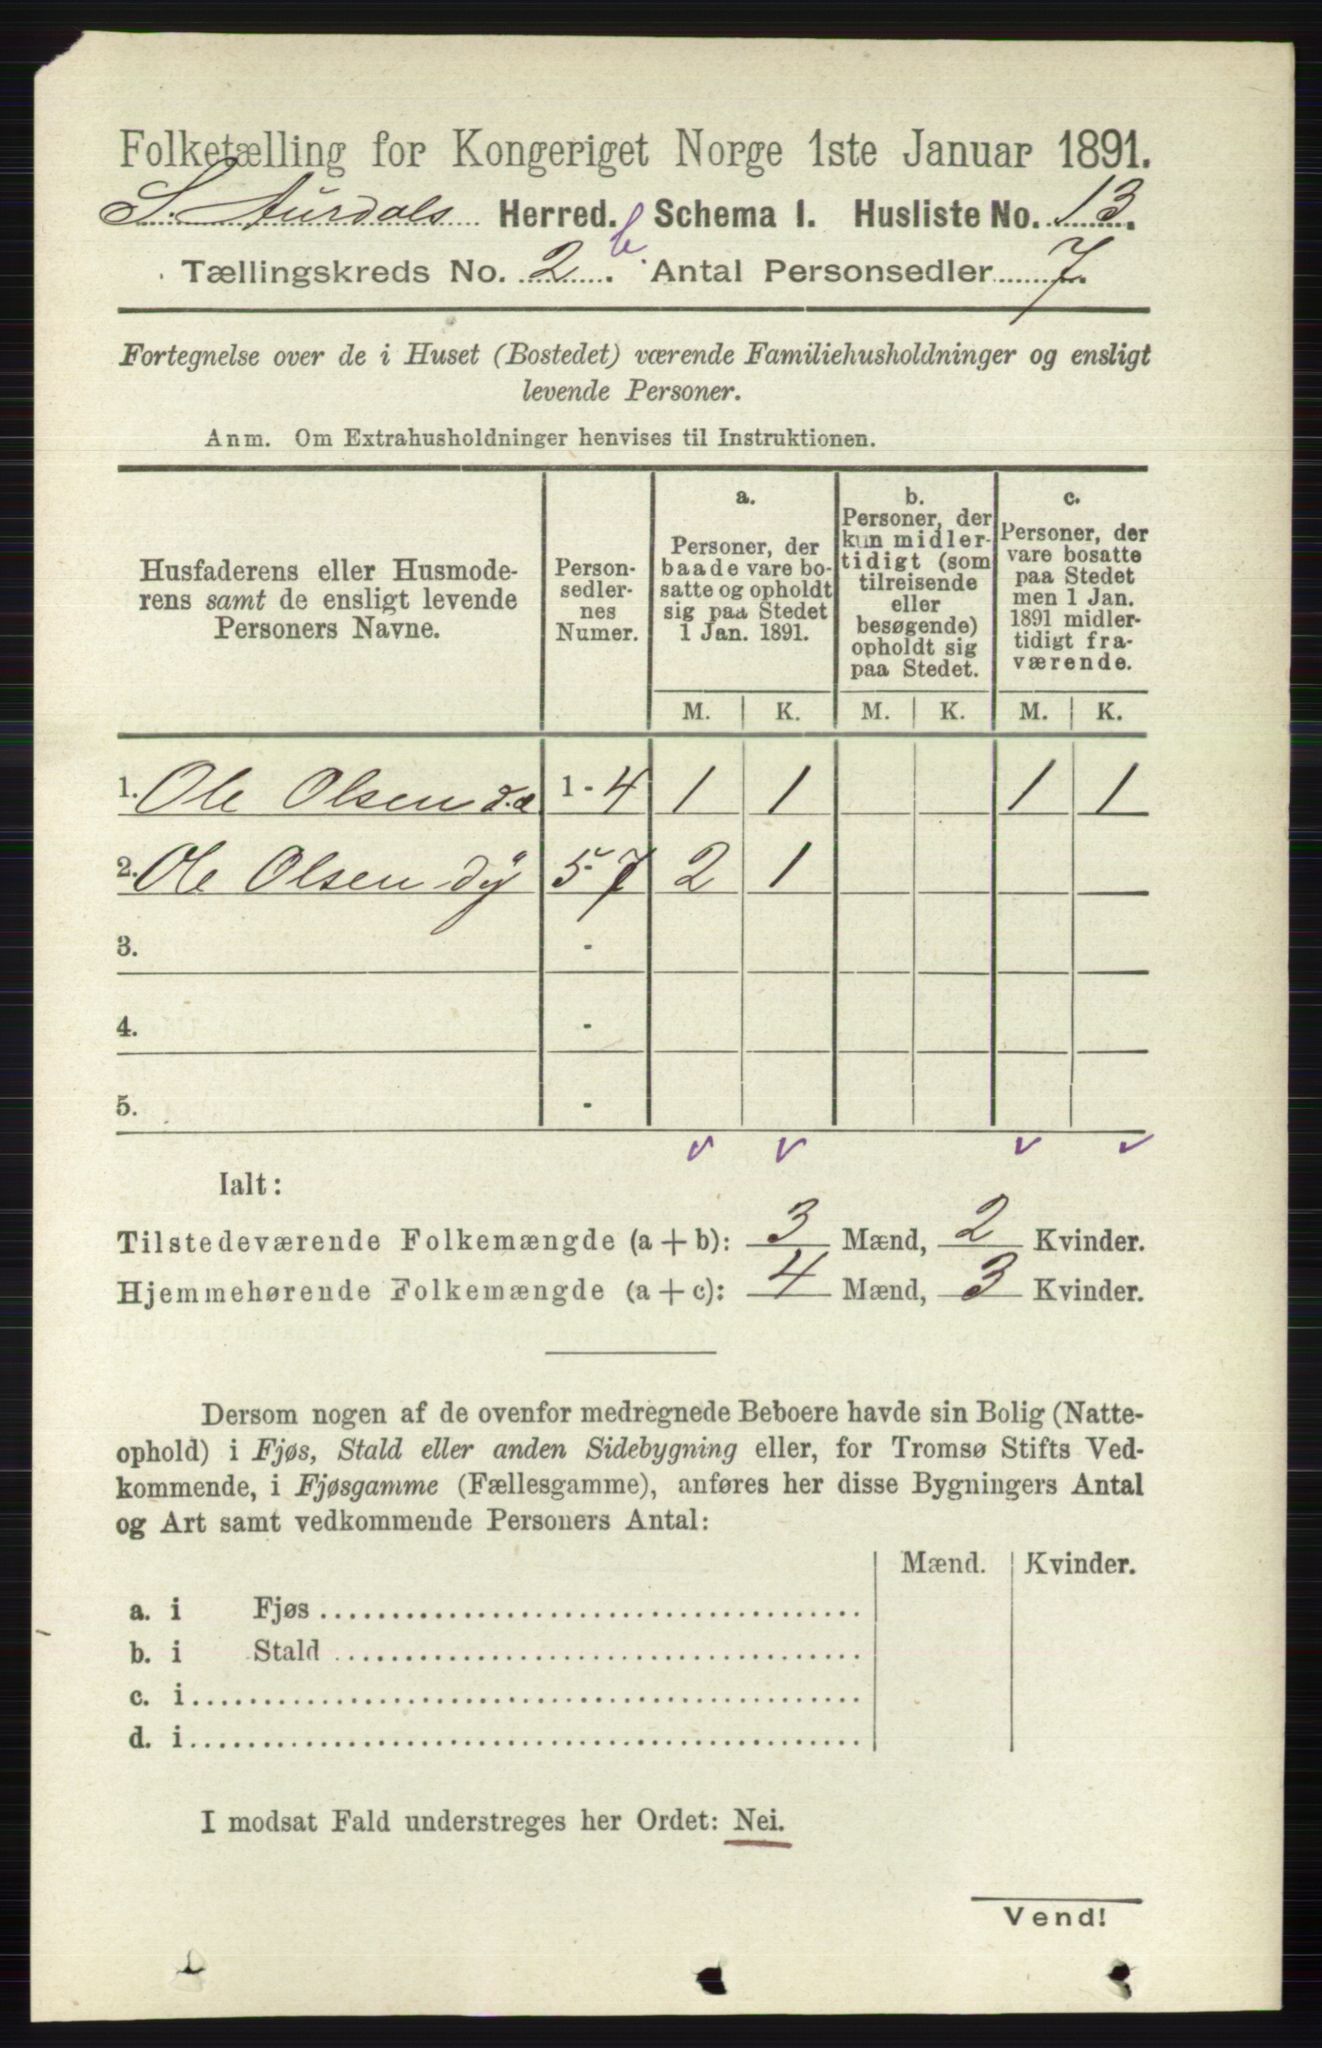 Folketælling for Kongeriget Norge 1ste Januar 1891.
S. Aurdals Herred. Schema I. Husliste No. 13.
Tællingskreds No. 2 b. Antal Personsedler 7.
Fortegnelse over de i Huset (Bostedet) værende Familiehusholdninger og ensligt
levende Personer.
Anm. Om Extrahusholdninger henvises til Instruktionen.
Husfaderens eller Husmode-
rens samt de ensligt levende
Personers Navne.
Person-
sedler-
nes
Numer.
a.
Personer, der
baade vare bo-
satte og opholdt
sig paa Stedet
1 Jan. 1891.
b.
Personer, der
kun midler-
tidigt (som
tilreisende
eller
besøgende)
opholdt sig
paa Stedet.
c.
Personer, der
vare bosatte
paa Stedet
men 1 Jan.
1891 midler-
tidigt fra-
værende.
M. K. M. K. M. K.
1. Ole Olsen d.e 1-4 1 1 1 1
2. Ole Olsen dy 5-7 2 1
3. -
4. -
5. -
Ialt:
Tilstedeværende Folkemængde (a + b): 3 Mænd, 2 Kvinder.
Hjemmehørende Folkemængde (a + c): 4 Mænd, 3 Kvinder.
Dersom nogen af de ovenfor medregnede Beboere havde sin Bolig (Natte-
ophold) i Fjøs, Stald eller anden Sidebygning eller, for Tromsø Stifts Ved-
kommende, i Fjøsgamme (Fællesgamme), anføres her disse Bygningers Antal
og Art samt vedkommende Personers Antal:
Mænd. Kvinder.
a. i Fjøs
b. i Stald
c. i
d. i
I modsat Fald understreges her Ordet: Nei.
Vend!